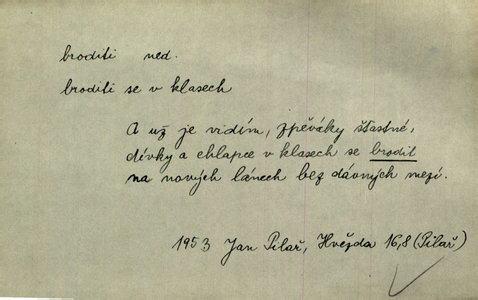 broditi ned.
broditi se v klasech
A už je vidím, zpěváky šťastné,
dívky a chlapce v klasech se brodit
na nových lánech bez dávných mezí.
1953 Jan Pilař, Hvězda 16,8 (Pilař)